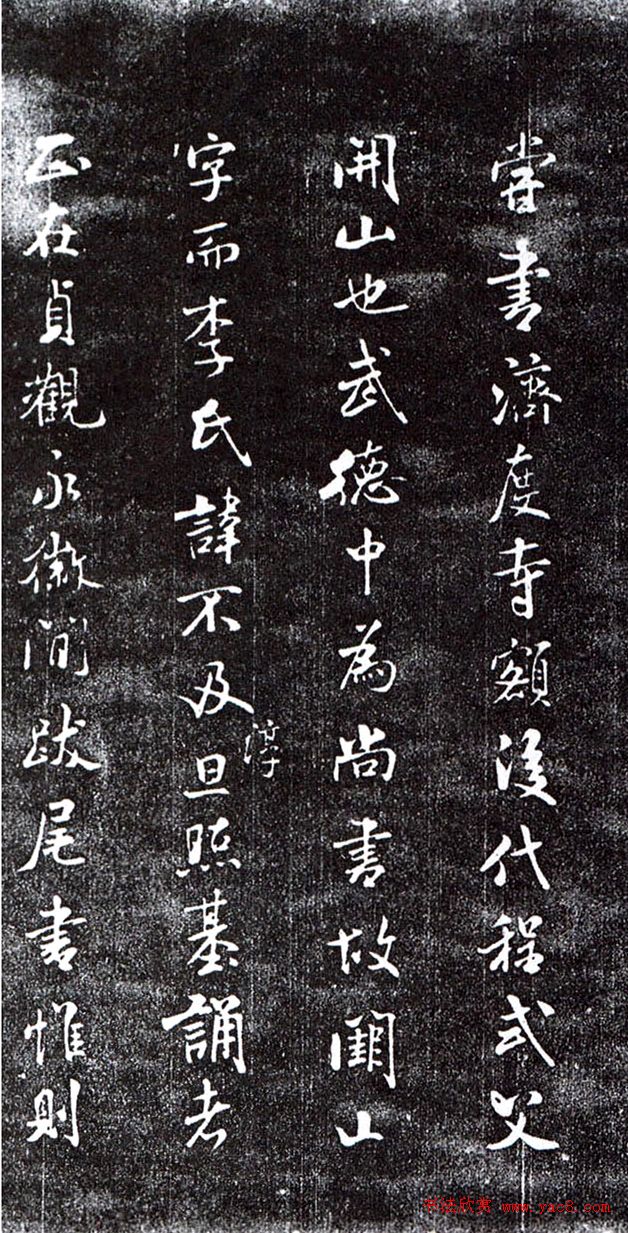 嘗書濟度寺額後代程式父
開山也武德中為尚書故闕山
字而李氏諱不及旦照基誦者
淳
正在貞觀永徽間跋尾書惟則
书法欣赏 www.yac8.com